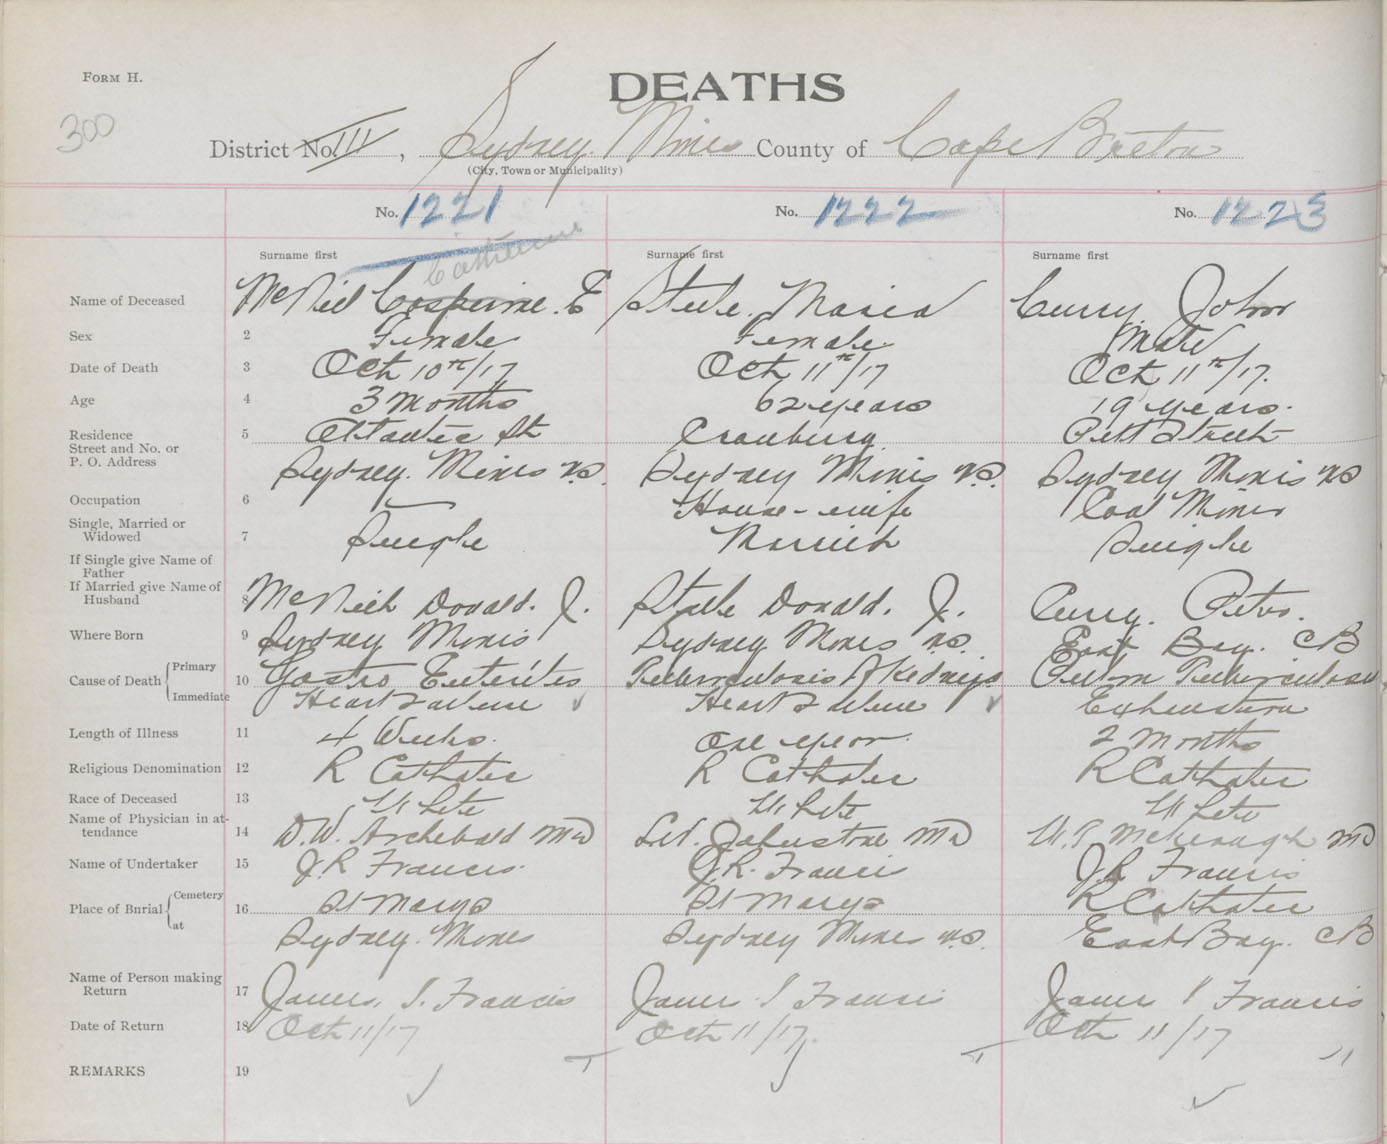 FORM H.
DEATHS
300
District No. III, Sydney Mines County of Cape Breton
(City, Town or Municipality)
No. 1221 No. 1222 No. 1223
Surname first Surname first Surname first
Catherine
Name of Deceased McNiel E Steele. Maria Curry John
Sex 2 Female Female Male
Date of Death 3 Oct 10th/17 Oct 11th/17 Oct 11th/17.
Age 4 3 Months 62 years 19 years.
Residence
Street and No. or
P. O. Address
5 Atlantic St Cranberry Pitt Street
Sydney. Mines N.S. Sydney Mines N.S. Sydney Mines NS
Occupation 6 — House-wife Coal Miner
Single, Married or
Widowed
7 Single Married Single
If Single give Name of
Father
If Married give Name of
Husband
8 McNeil Donald. J. Steele Donald. J. Curry. Peter.
Where Born 9 Sydney Mines Sydney Mines N.S. East Bay. CB
Cause of Death { Primary
Immediate
10 Gastro Enteritis Tuberculosis of Kidneys Pulm Tuberculosis
Heart Failure Heart Failure Exhaustion
Length of Illness 11 4 Weeks. One year. 2 Months
Religious Denomination 12 R Catholic R Catholic R Catholic
Race of Deceased 13 White White White
Name of Physician in at-
tendance
14 D. W. Archibald MD Johnstone MD McKeough MD
Name of Undertaker 15 J. R Francis. J. R. Francis J. R. Francis
Place of Burial { Cemetery
at
16 St Marys St Marys R Catholic
Sydney. Mines Sydney Mines N.S. East Bay. CB
Name of Person making
Return
17 James. J. Francis James J Francis James J Francis
Date of Return 18 Oct 11/17 Oct 11/17. Oct 11/17
REMARKS 19